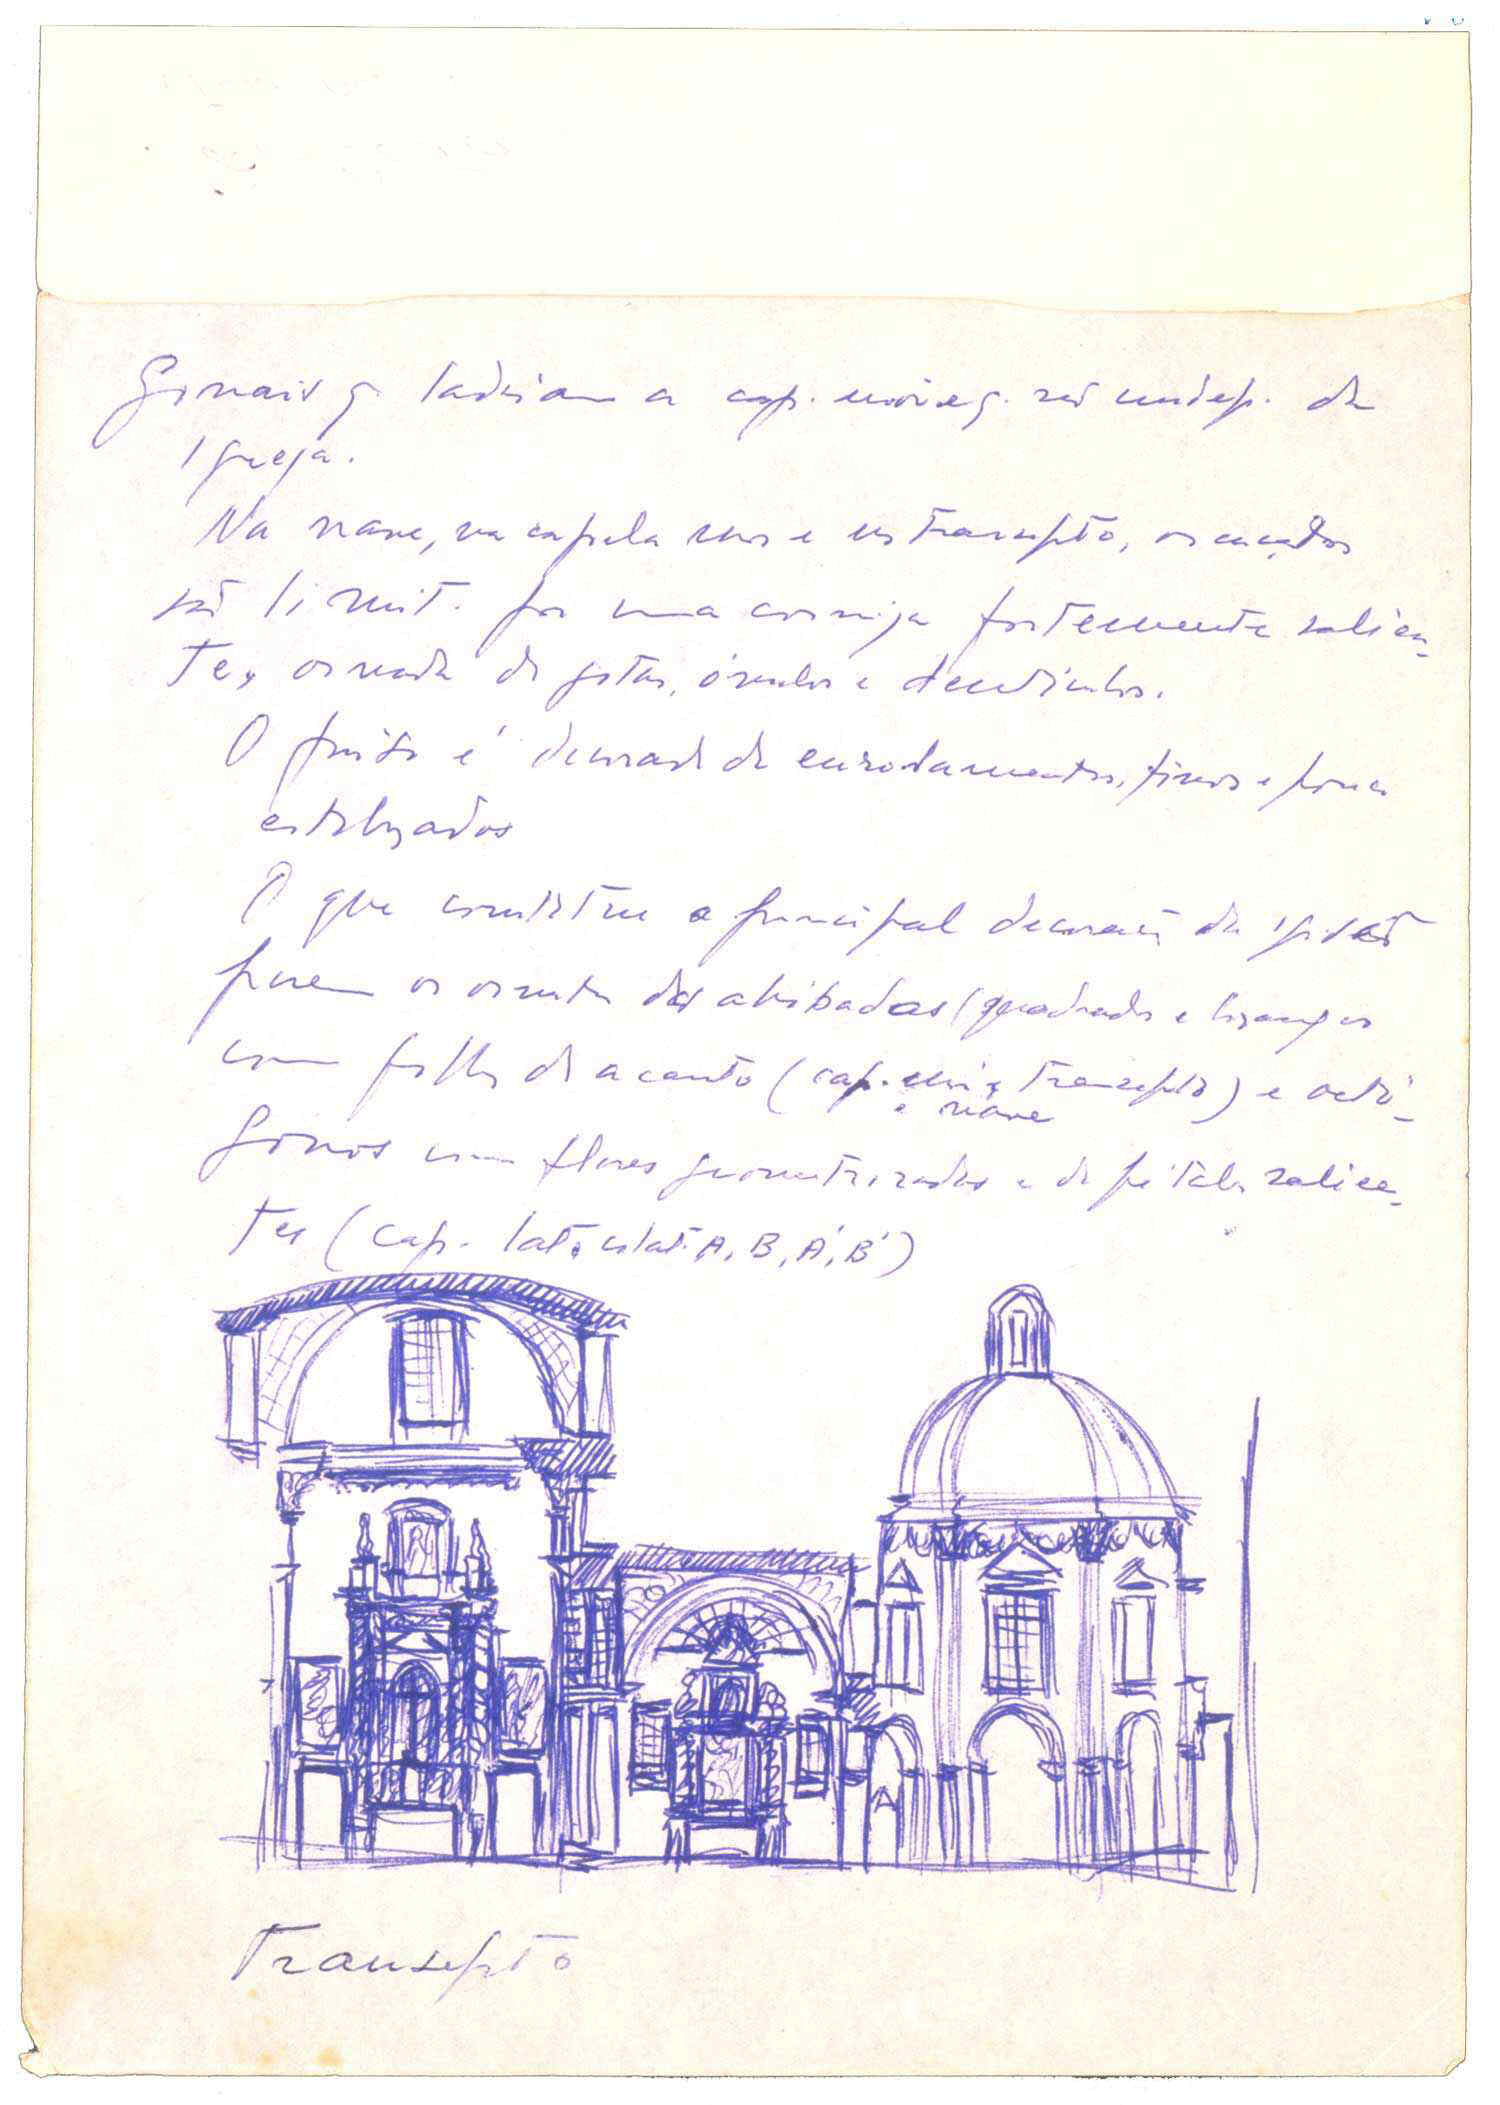 gonais q. ladeiam a cap. mór e q. são indep. da
igreja.
Na nave, na capela mor e no transepto, os
são limit. por uma cornija fortemente salien-
te, ornada de gotas, óvulos e dentículos.
O friso é decorado de enrolamentos, finos e pouco
estilizados
O que constitue a principal decoração da
porem os das abobadas (quadrados e losangos
com folhas de acanto (cap. mór, transepto) e octó-
e nave
gonos com flores geometrizadas e de pétalas salien-
tes (cap. lat. colat. A, B, A', B')
Transepto